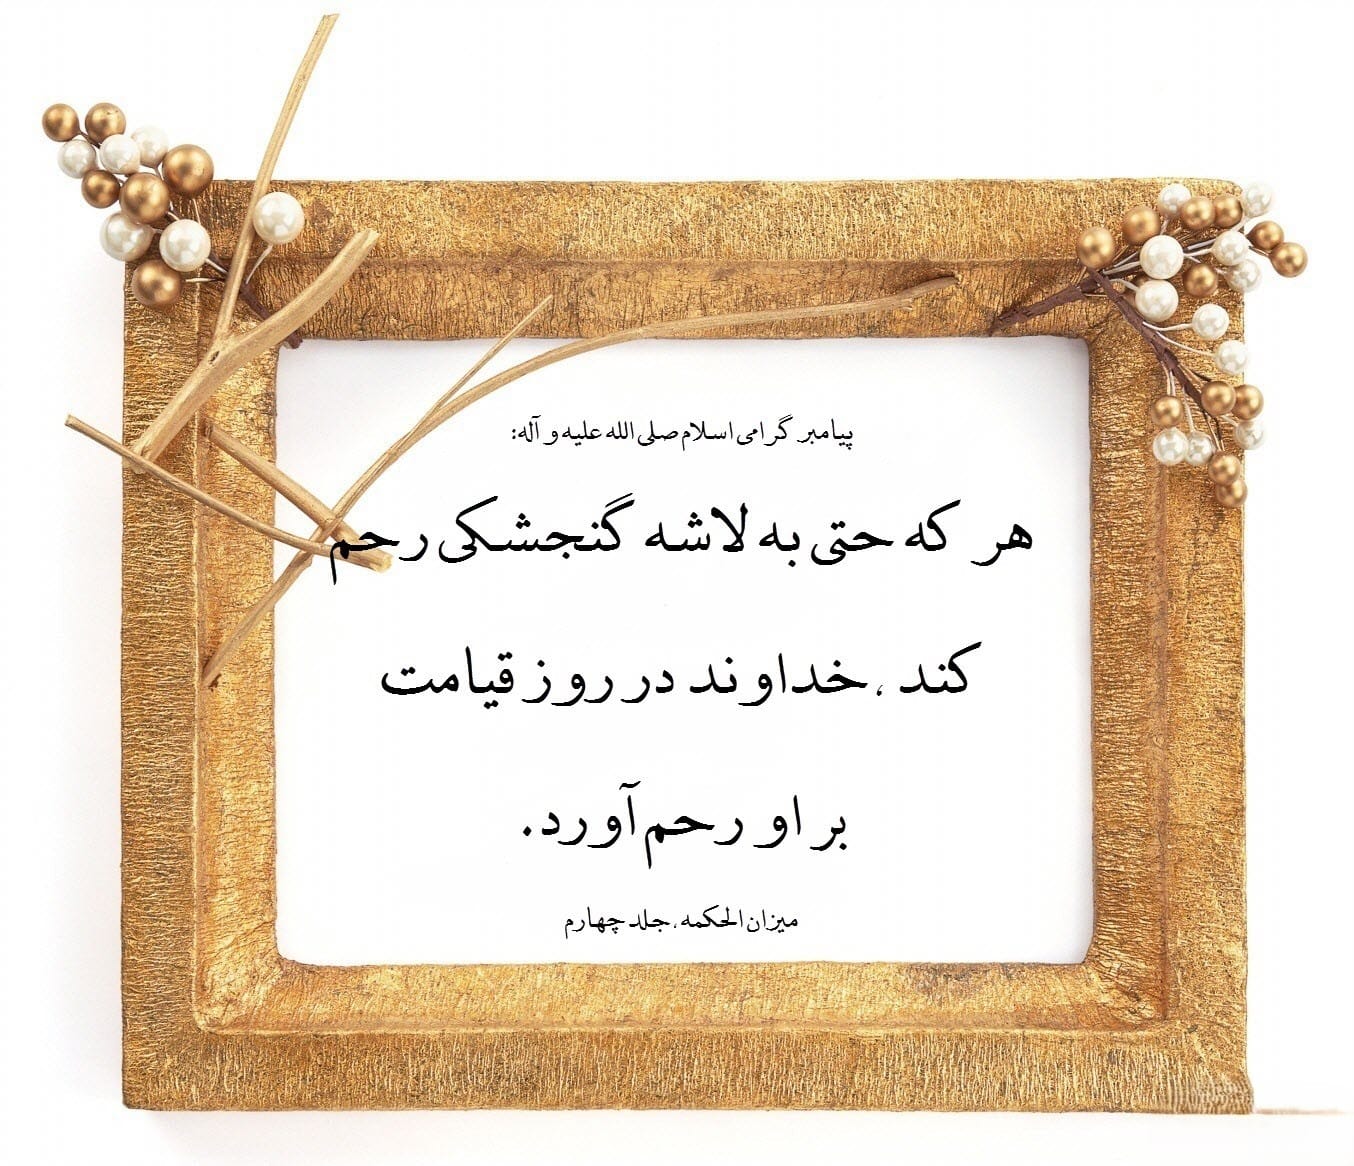 پیامبر گرامی اسلام صلی الله علیه و آله:
هر که حتی به لاشه گنجشکی رحم
کند ،خداوند در روز قیامت
بر او رحم آورد.
میزان الحکمه، جلد چهارم